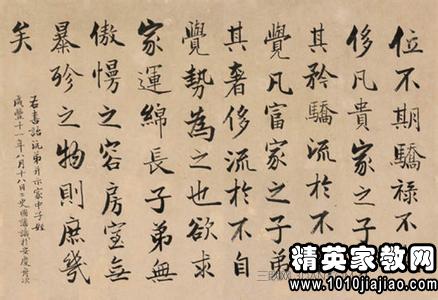 位不期驕禄不
侈凡貴家之子
其矜驕流於不
覺凡富家之子弟
其奢侈流於不自
覺勢為之也欲求
家運綿長子弟無
傲慢之容房室無
暴殄之物則庶幾
矣
右書詒沅弟并示家中子姪
咸豐十一年八月十八日國藩識於安慶舟次
精英家教网
www.1010jiajiao.com